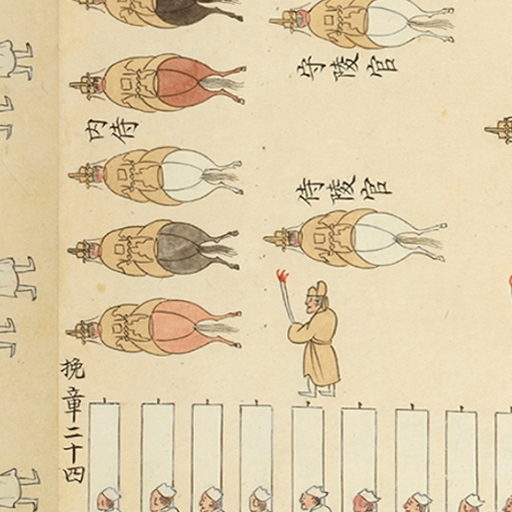 守陵官
内侍
侍陵官
挽章二十四